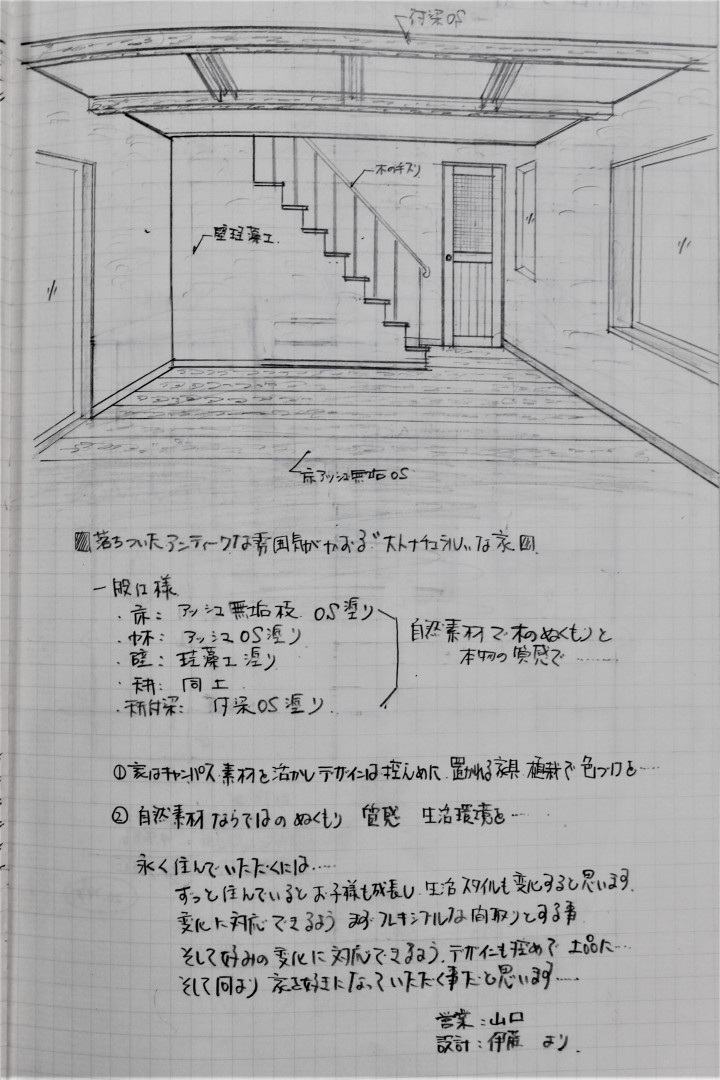 付梁OS
木の手スリ
壁珪藻土
床アッシュ無垢OS
落ちついたアンティークな雰囲気がかおる"大人ナチュラル"な家
一般仕様
・床: アッシュ無垢板 OS塗り
・巾木: アッシュOS塗り
・壁: 珪藻土塗り
・天井: 同上
・天井付梁: 付梁OS塗り
自然素材で木のぬくもりと
本物の質感で……
①家はキャンバス 素材を活かしデザインは控えめに 置かれる家具 植栽で色づけを……
② 自然素材ならではのぬくもり 質感 生活環境を…
永く住んでいただくには……
ずっと住んでいるとお子様も成長し 生活スタイルも変化すると思います.
変化に対応できるよう まずフレキシブルな間取りとする事
そして好みの変化に対応できるよう.デザインも控めで 上品に…
そして何より 家を好きになっていただく事だと思います……
営業:山口
設計:伊藤 より.